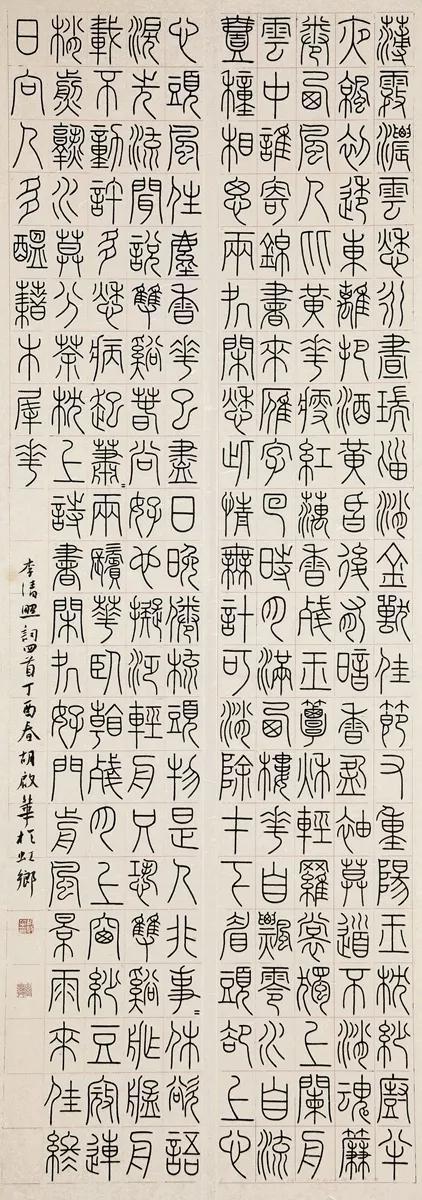 薄霧濃雲愁永晝瑞腦消金獸佳節又重陽玉枕紗廚半
夜涼初透東籬把酒黃昏後有暗香盈袖莫道不消魂簾
卷西風人比黃花瘦紅藕香殘玉簟秋輕羅裳獨上蘭舟
雲中誰寄錦書來雁字回時月滿西樓花自飄零水自流
壹種相思兩處閑愁此情無計可消除才下眉頭卻上心
心頭風住塵香花已盡日晚倦梳頭物是人非事=休欲語
淚先流聞說雙溪春尚好也擬泛輕舟只恐雙溪舴艋舟
載不動許多愁病起蕭=兩鬢華臥看殘月上窗紗豆蔻連
梢煎熟水莫分茶枕上詩書閑處好門前風景雨來佳終
日向人多醞藉木犀花
李清照詞四首丁酉春胡啟華於虹鄉